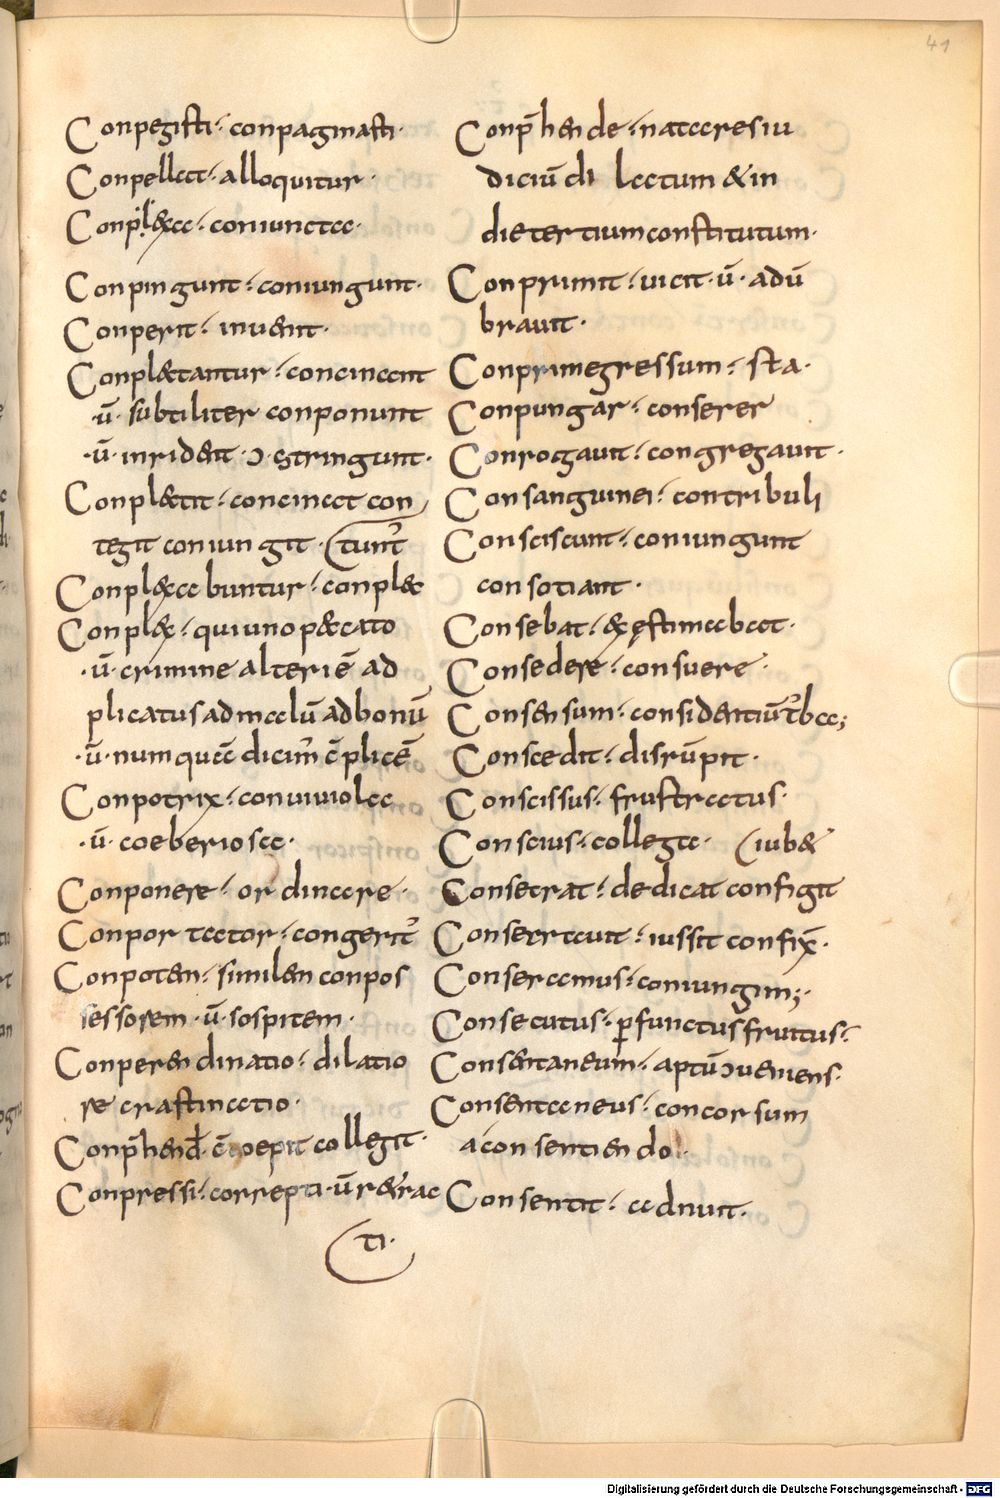 41
Conpegisti· conpaginasti·
Conpellat· alloquitur·
Conpl&a· coniuncta·
Conpingunt· coniungunt·
Conperit· inuenit·
Conpl&antur· concinant
·ū· subtiliter conponunt
·ū· inrident· ↄstringunt·
Conpl&it· concinat con
tegit coniungit·
Conplexabuntur· conpl&
(tunt᷒
Conplex· qui uno peccato
·ū· crimine alteri ē ad
plicatus ad malū ad bonū
·ū· numquā dicim᷒ cōplicē
Conpotrix· conuiuiola
·ū· coeberiosa·
Conponere· ordinare·
Conportator· congerit᷒
Conpotem· similem conpos
sessorem·ū· sospitem·
Conperendinatio· dilatio
re crastinatio·
Conp̄hend· coepit collegit·
Conpressi· correpti·ū r&rac
(ti·
Conp̄hende· natale resiu
diciū di lectum & in
die tertium constitutum·
Conprimit· uicit·ū· adū
brauit·
Conprime gressum· sta·
Conpungar· conserer
Conrogauit· congregauit·
Consanguinei· contribuli
Consciscunt· coniungunt
consotiant·
Consebat· & estimabat·
Consedere· consuere·
Consensum· considentiū t᷒ba;
Conscedit· disrūpit·
Conscissus· frustratus·
Conscius· collega· (iub&
Consecrat· dedicat configit
Conserrauit· iussit confix̄·
Conseramus· coniungim;·
Consecutus· ꝑfunctus fruitus·
Consentaneum· aptū ↄueniens·
Consentaneus· concorsum
a consentiendo·
Consentit· adnuit·
Digitalisierung gefördert durch die Deutsche Forschungsgemeinschaft - DFG